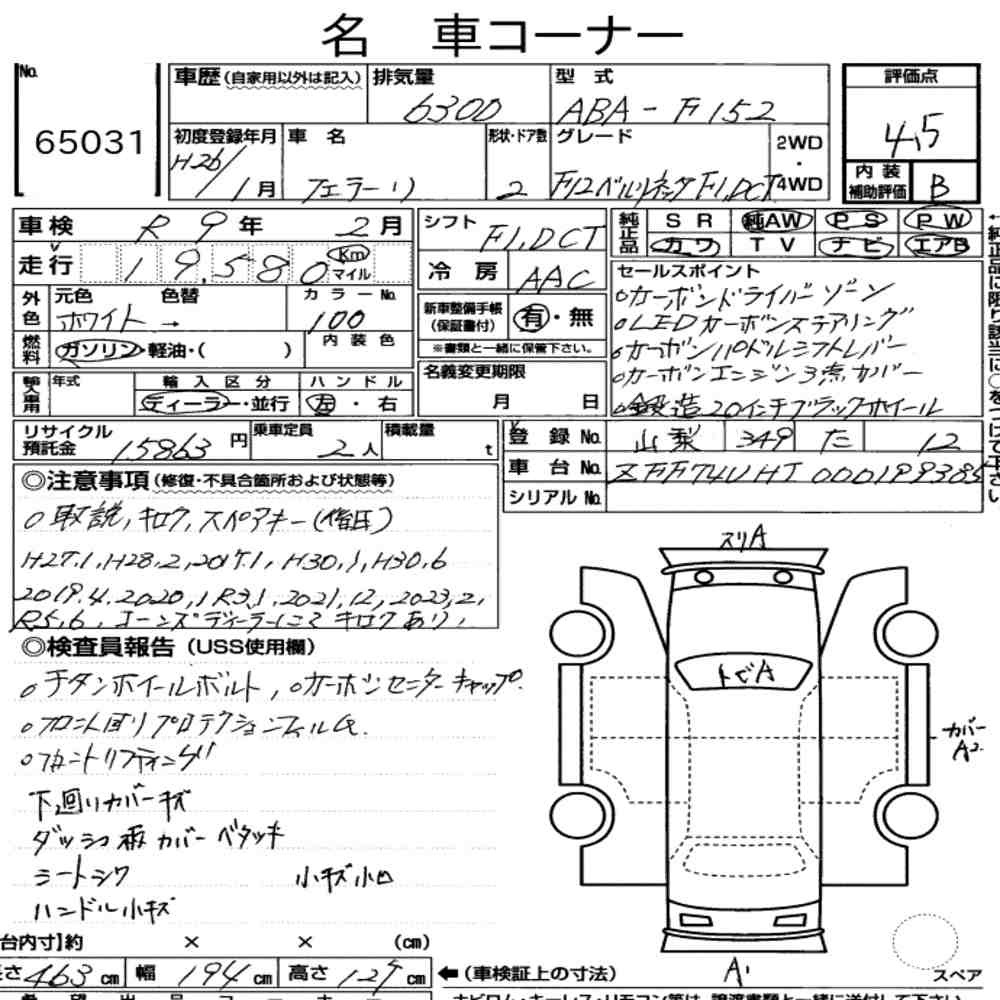 名 車コーナー
No. 65031
車歴(自家用以外は記入) 排気量 6300 型式 ABA-F152
評価点 4.5
初度登録年月 H26/1月 車名 フェラーリ 形状・ドア数 2 グレード F12ベルリネッタ F1,DCT 2WD・4WD
内装補助評価 B
車検 R9年 2月
走行 19,580 Km マイル
外色 元色 ホワイト 色替 → カラーNo. 100
燃料 ガソリン・軽油・( ) 内装色
輸入車用 年式 輸入区分 ディーラー・並行 ハンドル 左・右
シフト F1,DCT
冷房 AAC
新車整備手帳(保証書付) 有・無
※書類と一緒に保管下さい。
名義変更期限 月 日
純正品 SR 純AW PS PW
カワ TV ナビ エアB
セールスポイント
○カーボンドライバーゾーン
○LEDカーボンステアリング
○カーボンパドルシフトレバー
○カーボンエンジン3点カバー
○鍛造20インチブラックホイール
リサイクル預託金 15863円 乗車定員 2人 積載量 t
登録No. 山梨 349 た 12
車台No. ZFF74UHT 000199385
シリアルNo.
◎注意事項(修復・不具合箇所および状態等)
○取説,キロク,スペアキー(後日)
H27.1,H28.2,2017.1,H30.1,H30.6
2019.4.2020,1 R3.1,2021,12,2023,2,
R5,6,コーンズディーラーにてキロクあり,
◎検査員報告(USS使用欄)
○チタンホイールボルト,○カーボンセンターキャップ.
○フロント回りプロテクションフィルム.
○フロントリフティング
下廻りカバーキズ
ダッシュ廻 カバー ベタツキ
シートシワ 小キズ小凹
ハンドル小キズ
スリA
トビA
カバーA2
A1
スペア
台内寸】約 × × (cm)
長さ 463cm 幅 194cm 高さ 127cm ←(車検証上の寸法)